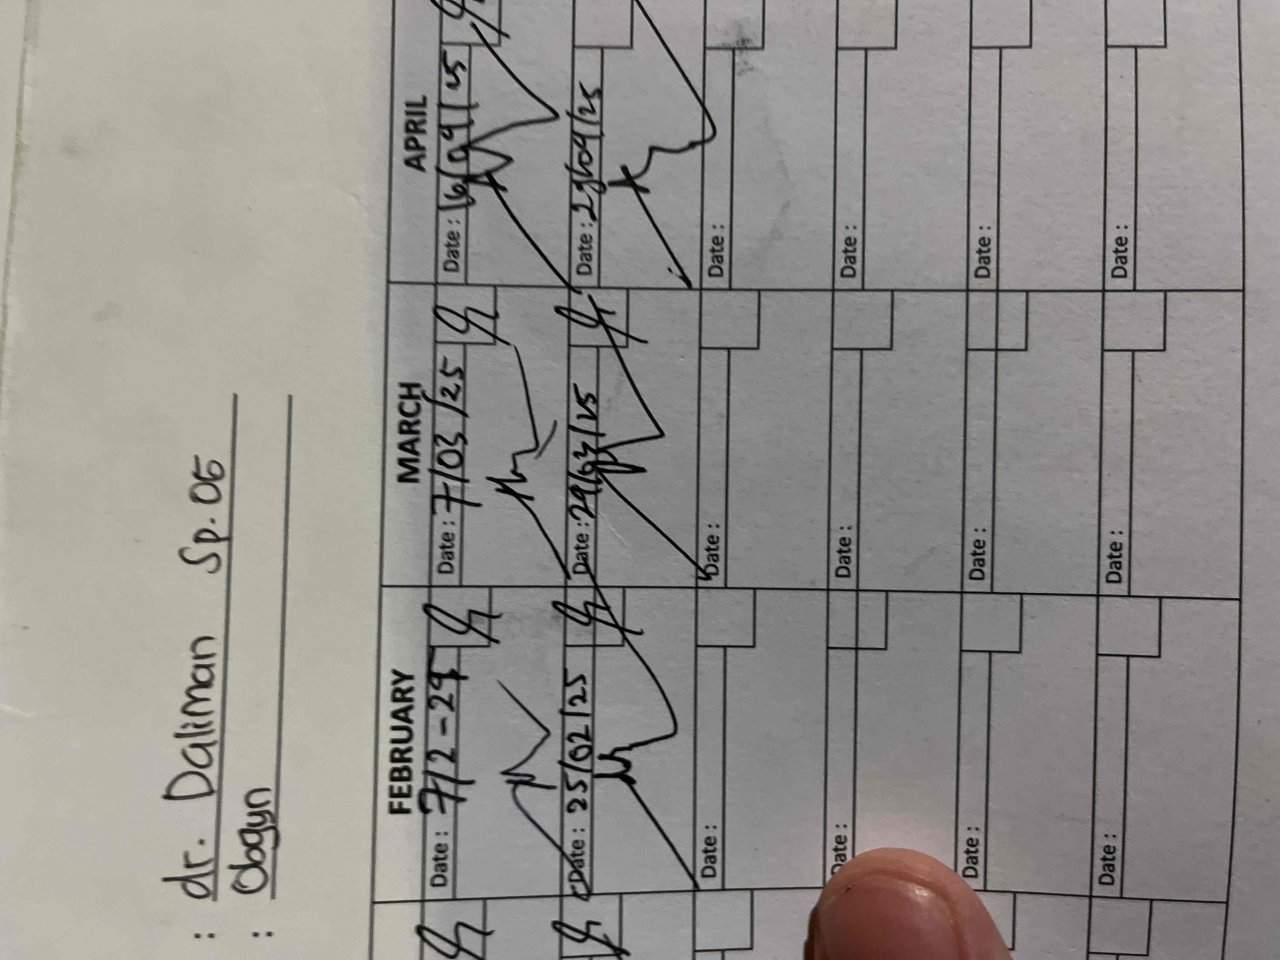 : dr. Daliman Sp.OG
: Obgyn
FEBRUARY MARCH APRIL
Date : 7/2-25 Date : 7/03/25 Date : 16/04/25
Date : 25/02/25 Date : 29/03/25 Date : 29/04/25
Date : Date : Date :
Date : Date : Date :
Date : Date : Date :
Date : Date : Date :